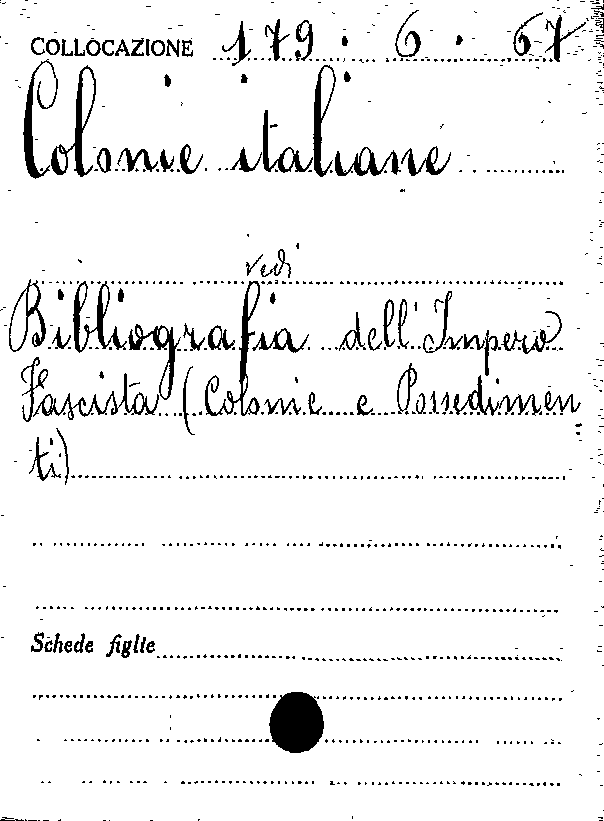 COLLOCAZIONE 179.6.67
Colonie italiane
vedi
Bibliografia dell'Impero
Fascista (Colonie e Possedimen
ti)
Schede figlie